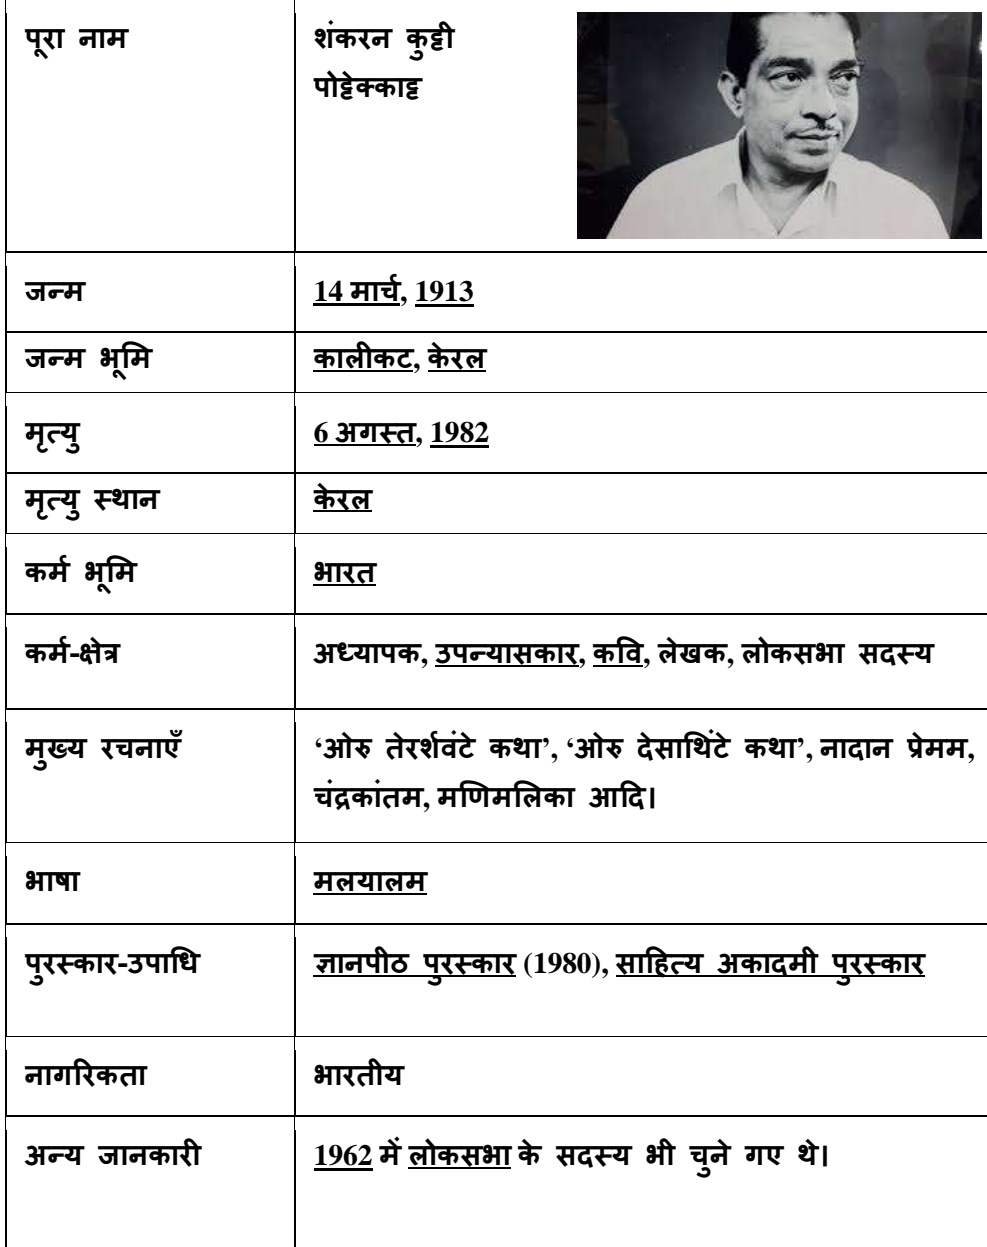 पूरा नाम	शंकरन कुट्टी
पोट्टेक्काट्ट
जन्म	14 मार्च, 1913
जन्म भूमि	कालीकट, केरल
मृत्यु	6 अगस्त, 1982
मृत्यु स्थान	केरल
कर्म भूमि	भारत
कर्म-क्षेत्र	अध्यापक, उपन्यासकार, कवि, लेखक, लोकसभा सदस्य
मुख्य रचनाएँ	‘ओरु तेरर्शवंटे कथा’, ‘ओरु देसाथिंटे कथा’, नादान प्रेमम,
चंद्रकांतम, मणिमलिका आदि।
भाषा	मलयालम
पुरस्कार-उपाधि	ज्ञानपीठ पुरस्कार (1980), साहित्य अकादमी पुरस्कार
नागरिकता	भारतीय
अन्य जानकारी	1962 में लोकसभा के सदस्य भी चुने गए थे।